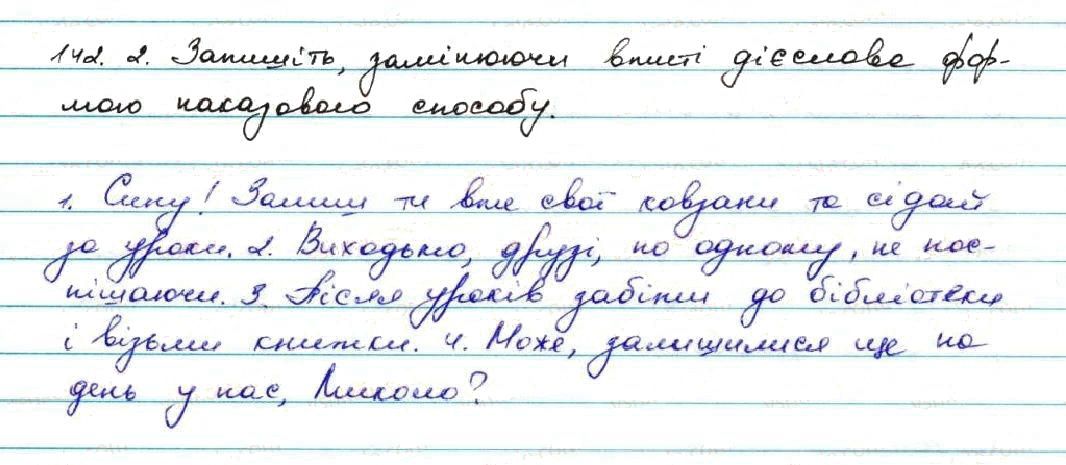 142. 2. Запишіть, замінюючи вжиті дієслова фор-
мою наказового способу.
1. Сину! Залиш ти вже свої ковзани та сідай
за уроки. 2. Виходьмо, друзі, по одному, не пос-
пішаючи. 3. Після уроків забіжи до бібліотеки
і візьми книжки. 4. Може, залишимися ще на
день у нас, Миколо?